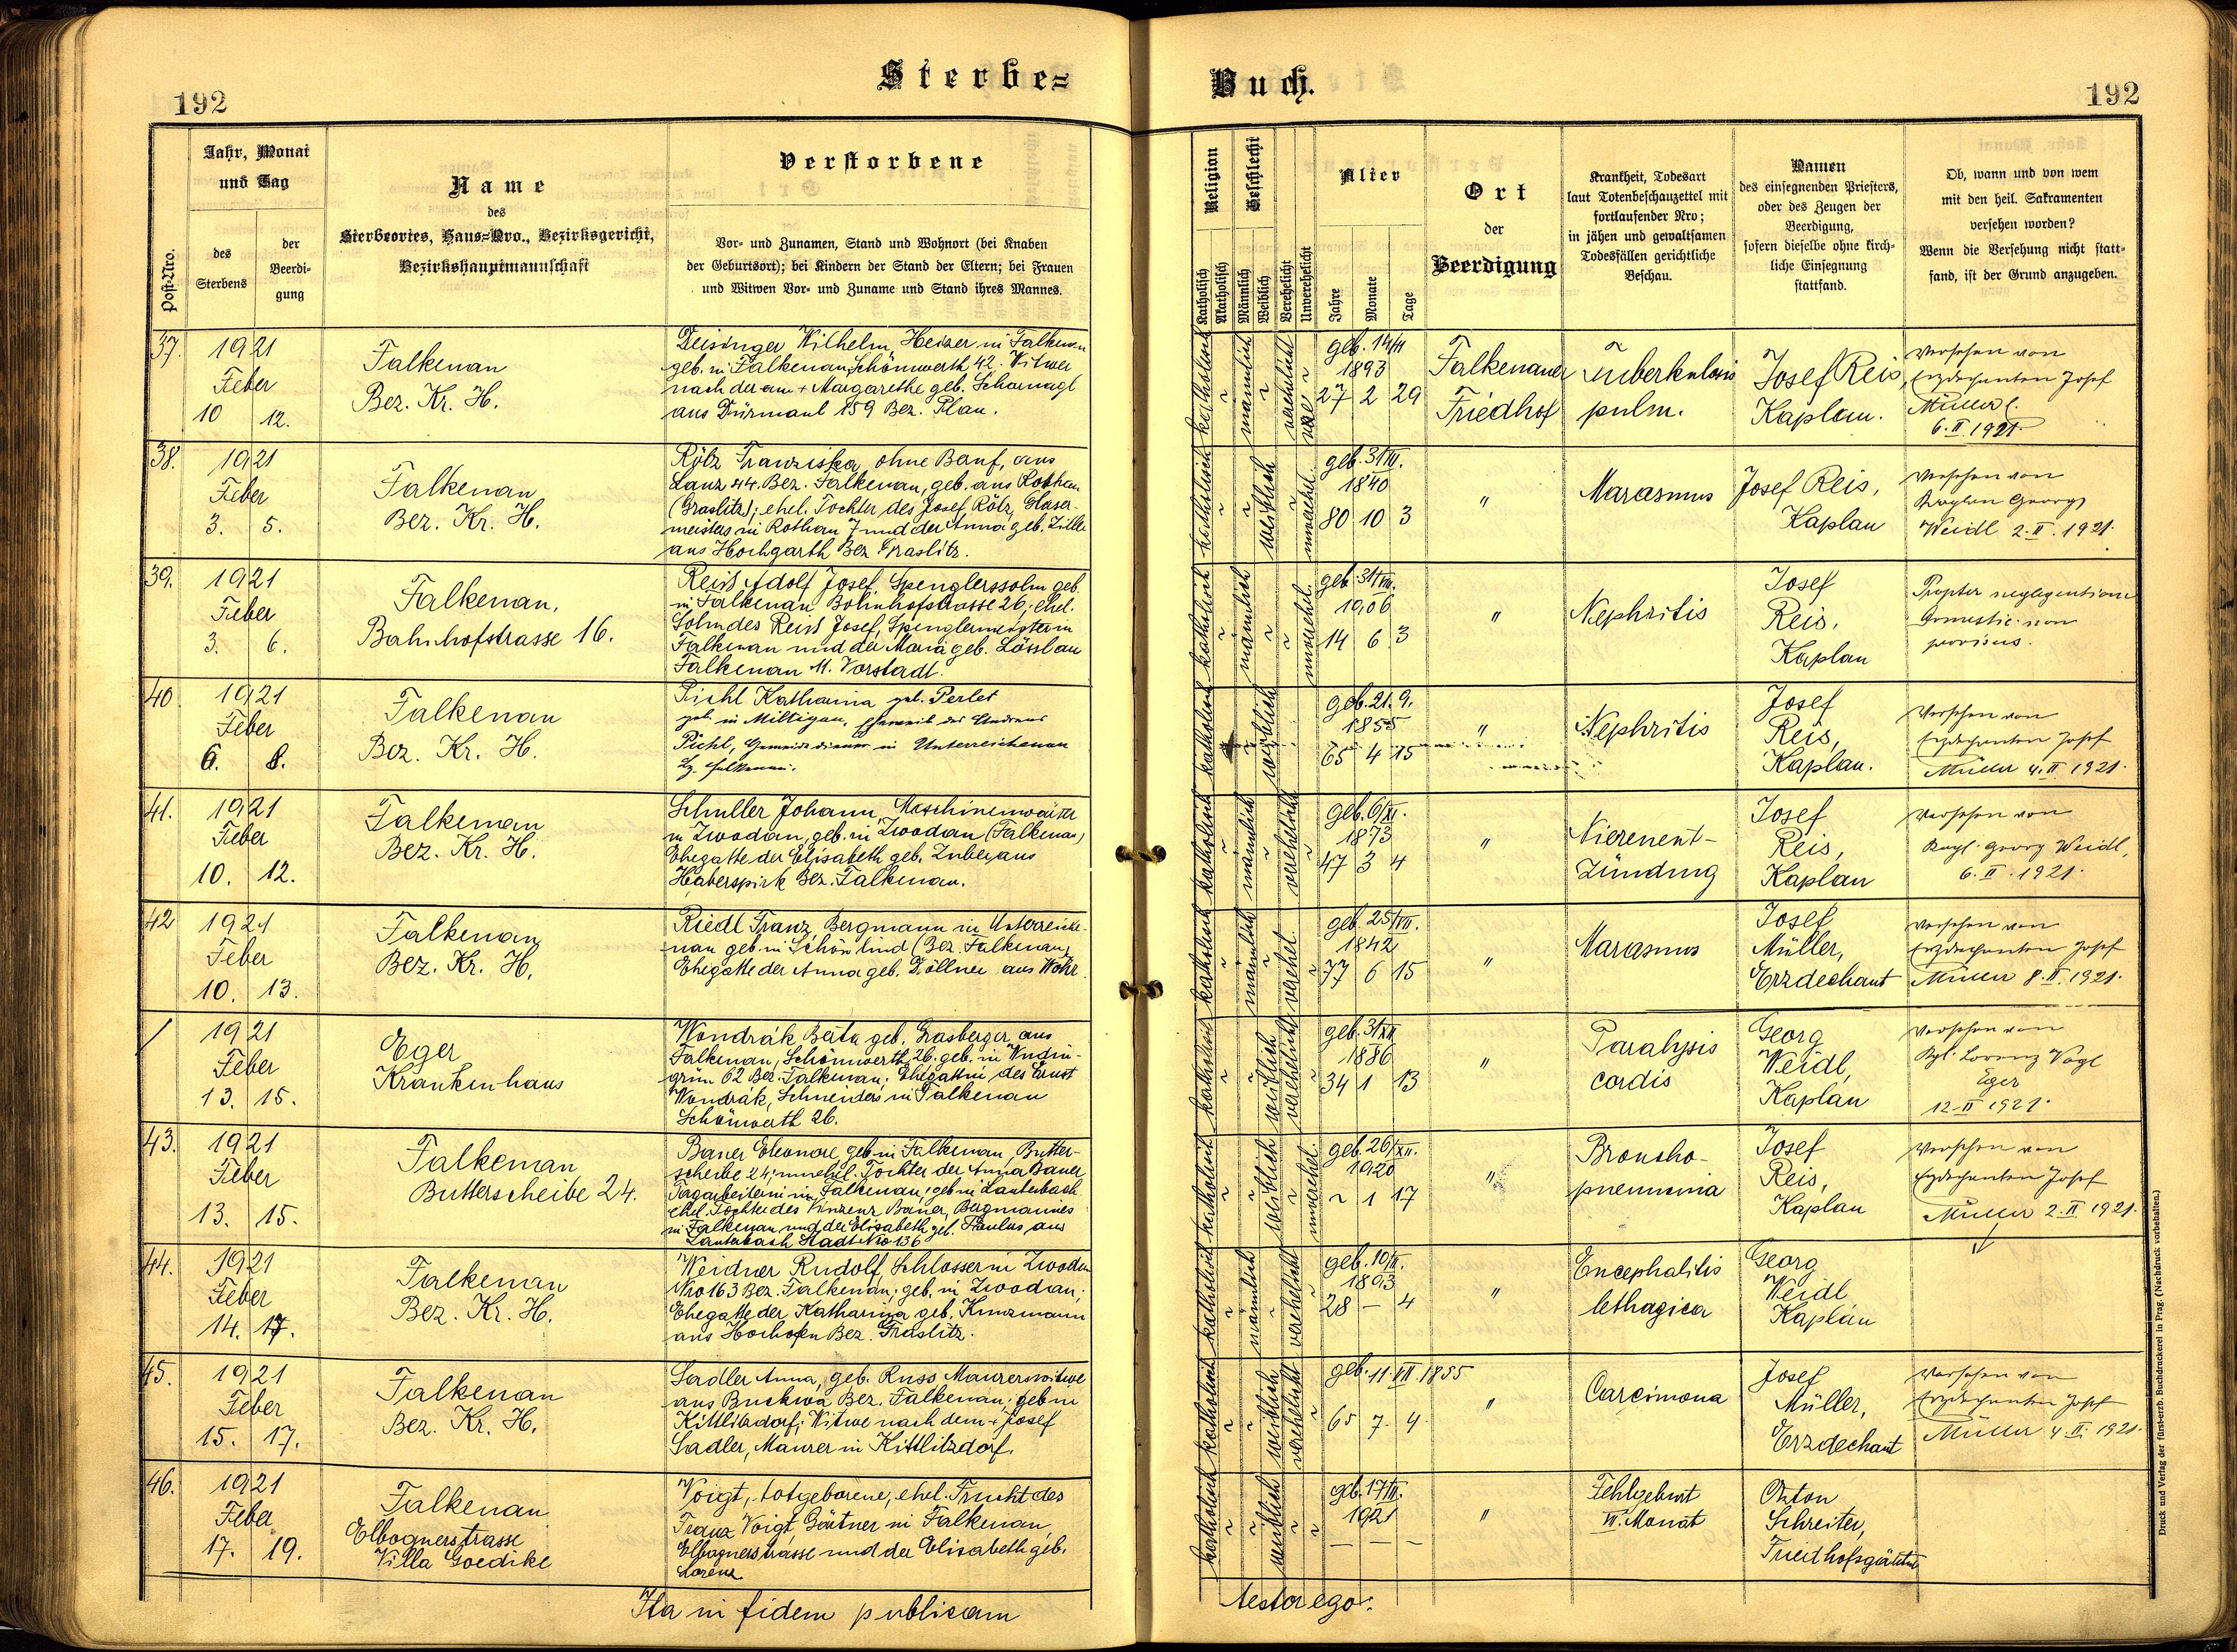 Sterbe-
Buch.
192
192
Post-Nro.
Jahr, Monat
und Tag
des
Sterbens
der
Beerdi-
gung
Name
des
Sterbeortes, Haus-Nro., Bezirksgericht,
Bezirkshauptmannschaft
Verstorbene
Vor- und Zunamen, Stand und Wohnort (bei Knaben
der Geburtsort); bei Kindern der Stand der Eltern; bei Frauen
und Witwen Vor- und Zuname und Stand ihres Mannes.
Religion
Katholisch
Akatholisch
Geschlecht
Männlich
Weiblich
Verehelicht
Unverehelicht
Alter
Jahre
Monate
Tage
Ort
der
Beerdigung
Krankheit, Todesart
laut Totenbeschauzettel mit
fortlaufender Nro;
in jähen und gewaltsamen
Todesfällen gerichtliche
Beschau.
Namen
des einsegnenden Priesters,
oder des Zeugen der
Beerdigung,
sofern dieselbe ohne kirch-
liche Einsegnung
stattfand.
Ob, wann und von wem
mit den heil. Sakramenten
versehen worden?
Wenn die Versehung nicht statt-
fand, ist der Grund anzugeben.
37.
1921
Feber
10 12.
Falkenau
Bez. Kr. H.
Deisinger Wilhelm, Heizer in Falkenau
geb. in Falkenau, Schönwerth 42. Witwer
nach der am + Margarethe geb. Scharnagl
aus Dürmaul 159 Bez. Plan.
katholisch
männlich
verehelicht
geb. 14/11
1893
27 2 29
Falkenauer
Friedhof
Tuberkulosis
pulm.
Josef Reis,
Kaplan.
Versehen von
Erzdechanten Josef
Müller
6. II. 1921.
38.
1921
Feber
3. 5.
Falkenau
Bez. Kr. H.
Rölz Franziska, ohne Beruf, aus
Lanz 44. Bez. Falkenau, geb. aus Rothau
(Graslitz); ehel. Tochter des Josef Rölz, Glaser-
meisters in Rothau 7 und der Anna geb. Zille
aus Hochgarth Bez Graslitz.
katholisch
weiblich
unverehel.
geb. 31/III.
1840
80 10 3
"
Marasmus
Josef Reis,
Kaplan
Versehen von
Kaplan Georg
Weidl 2. II. 1921.
39.
1921
Feber
3. 6.
Falkenau,
Bahnhofstrasse 16.
Reiss Adolf Josef, Spenglerssohn geb.
in Falkenau Bahnhofstrasse 26; ehel.
Sohn des Reiss Josef, Spenglermeister in
Falkenau und der Maria geb. Lössl au
Falkenau 11. Vorstadt.
katholisch
männlich
unverehel.
geb. 31/VII.
1906
14 6 3
"
Nephritis
Josef
Reis,
Kaplan
Propter negligentiam
domestic. non
provisus.
40
1921
Feber
6. 8.
Falkenau
Bez. Kr. H.
Pichl Katharina geb. Perlet
geb. in Miltigau, Eheweib des Andreas
Pichl, Gemeindediener in Unterreichenau
Bz. Falkenau.
katholisch
weiblich
geb. 21. 9.
1855
65 4 15
"
Nephritis
Josef
Reis,
Kaplan.
Versehen von
Erzdechanten Josef
Müller 4. II 1921.
41.
1921
Feber
10. 12.
Falkenau
Bez. Kr. H.
Schuller Johann, Maschinenwärter
in Zwodau, geb. in Zwodau (Falkenau)
Ehegatte der Elisabeth geb. Zuber aus
Haberspirk Bez. Falkenau.
katholisch
männlich
verehelicht
geb. 6/XI.
1873
47 3 4
"
Nierenent-
zündung
Josef
Reis,
Kaplan
Versehen von
Kapl. Georg Weidl,
6. II. 1921.
42
1921
Feber
10. 13.
Falkenau
Bez. Kr. H.
Riedl Franz, Bergmann in Unterreiche-
nau geb. in Schönlind (Bez Falkenau)
Ehegatte der Anna geb. Zöllner aus Wöhr.
katholisch
männlich
verehel.
geb. 25/VII.
1842
77 6 15
"
Marasmus
Josef
Müller,
Erzdechant
Versehen von
Erzdechanten Josef
Müller 8. II. 1921.
/
1921
Feber
13. 15.
Eger
Krankenhaus
Wondrák Beata geb. Grasberger, aus
Falkenau, Schönwerth 26. geb. in Wudin-
grün 62 Bez. Falkenau. Ehegattin des Ernst
Wondrák, Schneiders in Falkenau
Schönwerth 26.
katholisch
weiblich
verehelicht
geb. 31/XII
1886
34 1 13
"
Paralysis
cordis
Georg
Weidl,
Kaplan
Versehen von
Kpl. Lorenz Vogl
Eger
12-II 1921.
43.
1921
Feber
13. 15.
Falkenau
Butterscheibe 24.
Bauer Eleonore geb. in Falkenau, Butter-
scheibe 24; unehel. Tochter der Anna Bauer
Tagarbeiterin in Falkenau; geb in Lauterbach
ehel. Tochter des Vinzenz Bauer, Bergmannes
in Falkenau und der Elisabeth geb. Paulus aus
Lauterbach Stadt Nro 136
katholisch
weiblich
unverehel.
geb. 26/XII.
1920
~ 1 17
"
Broncho-
pneumonia
Josef
Reis,
Kaplan
Versehen von
Erzdechanten Josef
Müller 2. II 1921.
44.
1921
Feber
14. 17.
Falkenau
Bez. Kr. H.
Weidner Rudolf, Schlosser in Zwodau
Nro 163 Bez. Falkenau; geb. in Zwodau;
Ehegatte der Katharina geb. Kunzmann
aus Hochofen Bez. Graslitz.
katholisch
männlich
verehelicht
geb. 10/II.
1893
28 — 4
"
Encephalitis
lethagica
Georg
Weidl
Kaplan
45.
1921
Feber
15. 17.
Falkenau
Bez. Kr. H.
Sadler Anna, geb. Russ Maurerswitwe
aus Buckwa Bez. Falkenau; geb in
Kittlitzdorf; Witwe nach dem + Josef
Sadler, Maurer in Kittlitzdorf.
katholisch
weiblich
verehelicht
geb. 11. VII. 1855
65 7 4
"
Carcimona
Josef
Müller,
Erzdechant
Versehen von
Erzdechanten Josef
Müller 4. II. 1921.
46.
1921
Feber
17. 19.
Falkenau
Elbognerstrasse
Villa Goedike
Voigt, totgeborene, ehel. Frucht des
Franz Voigt, Gärtner in Falkenau,
Elbognerstrasse und der Elisabeth geb.
Lorenz
katholisch
weiblich
geb. 17/II.
1921
— — —
"
Fehlgeburt
VI. Monat
Anton
Schreiter,
Friedhofsgärtner
Ita in fidem publicam
testor ego:
Druck und Verlag der fürst-errb. Buchdruckerei in Prag. (Nachdruck vorbehalten.)